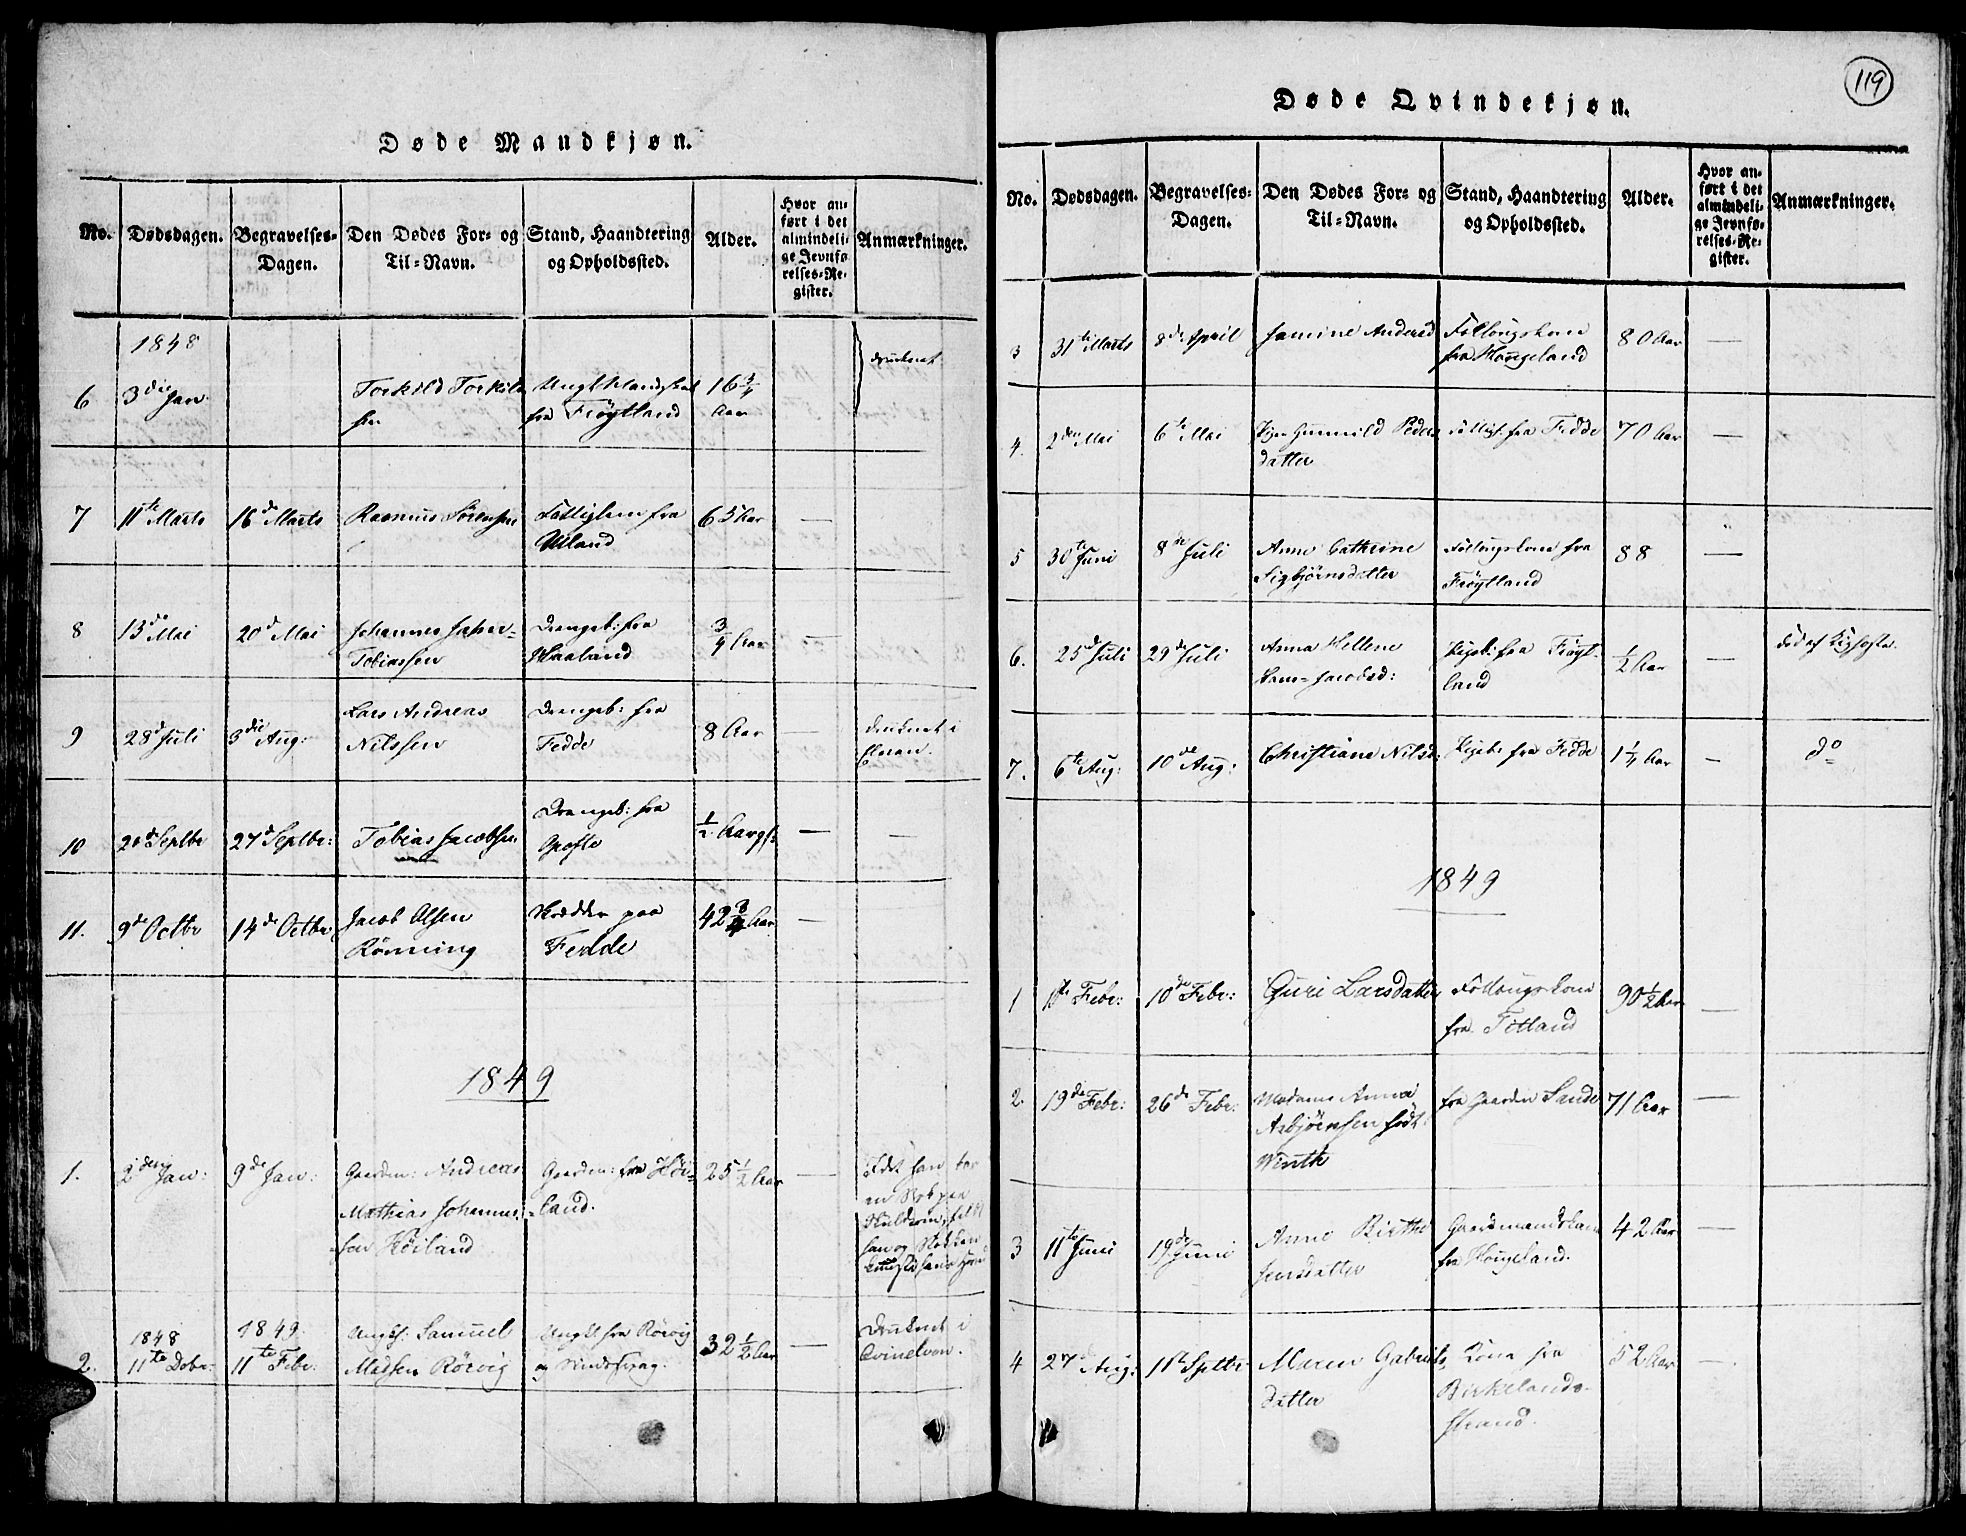 Døde Mandkjøn.
No.
Dødsdagen.
Begravelses-
Dagen.
Den Dødes For- og
Til-Navn.
Stand, Haandtering
og Opholdssted.
Alder.
Hvor an-
ført i det
almindeli-
ge Jevnfø-
relses-Re-
gister.
Anmærkninger.
1848
6
3die Jan
Torkild Torkild-
sen
fra Frøytland
16 3/4
Aar
druknet
7
11te Marts
16de Marts
Rasmus Sørensen
fra
Uland
65 Aar
—
8
13de Mai
20de Mai
Johannes
Tobiassen
Drengeb: fra
Haaland
3/4 Aar
—
9
28de Juli
3die Aug:
Lars Andreas
Nilssen
Drengeb: fra
Fedde
8 Aar
—
druknet i
10
Septbr
27de Septbr:
Tobias Jacobsen
Drengeb: fra
1/2
—
—
11.
9de Octbr
14de Octbr
Jacob Olsen
Rønning
paa
Fedde
42 3/4 Aar
—
1849
1.
2den Jan:
9de Jan:
Gaardm: Andreas
Mathias Johannes-
sen Høiland
Gaardm: fra Høi-
land.
25 1/2 Aar
—
2.
1848
11te Debr:
1849
11te Febr:
Ungk: Samuel
Madsen Rørvig
Ungk: fra Rørvig
32 1/2 Aar
—
Druknet i
119
Døde Qvindekjøn.
No.
Dødsdagen.
Begravelses-
Dagen.
Den Dødes For- og
Til-Navn.
Stand, Haandtering
og Opholdssted.
Alder.
Hvor an-
ført i det
almindeli-
ge Jevnfø-
relses-Re-
gister.
Anmærkninger.
3
31te Marts
8de April
Jamine Andersd
Føllougskone
fra Hougeland
80 Aar
—
4.
2den Mai
6te Mai
Gunnild Peders
datter
fra Fedde
70 Aar
—
5
30te Juni
8de Juli
Anne Cathrine
Sigbjørnsdatter
Føllougskone fra
Frøytland
88
—
6.
25de Juli
29de Juli
Anna Hellene
Pigeb: fra Frøyt-
land
1/2 Aar
—
død af Kighoste.
7.
6te Aug:
10de Aug:
Christiane Nilsd:
Pigeb: fra Fedde
1 1/4 Aar
—
do
1849
1
Febr:
10de Febr:
Guri Larsdatter
Føllougskone
fra Titland
90 1/2 Aar
—
2.
19de Febr:
26de Febr:
Madame Anna
Asbjørnsen født
Winth
fra Gaarden Sande
71 Aar
—
3
11te Juni
19de Juni
Anne Birthe
Jensdatter
Gaardmandskone
fra Hougeland.
42 Aar
—
4
27de Aug:
11te Sptbr
Maren Gabriels
datter
Kone fra
Birkelands-
strand.
52 Aar
—